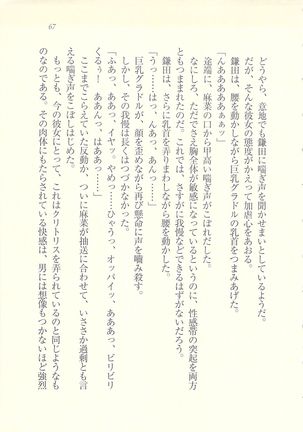 67
どうやら、意地でも鎌田に喘ぎ声を聞かせまいとしているようだ。
だが、そんな彼女の態度がかえって加虐心をあおる。
鎌田は、腰を動かしながら巨乳グラドルの乳首をつまみあげた。
「んあああああぁッ」
途端に、麻菜の口から甲高い喘ぎ声がこぼれだした。
なにしろ、ただでさえ胸全体が敏感になっているというのに、性感帯の突起を両方
ともつままれたのだ。これでは、さすがに我慢などできるはずがないだろう。
鎌田は、さらに乳首を弄りまわしながら腰を動かした。
「うっ……はっ、んあっ、あんっ……」
巨乳グラドルが、顔を歪めながら再び懸命に声を噛み殺す。
しかし、その我慢は長くはつづかなかった。
「ふあっ、ああっ、イヤッ。やめっ……ひゃうっ、オッパイッ、あああっ、ビリビリ
するぅ！　ああんっ、はああっ……」
ここまでこらえていた反動か、ついに麻菜が抽送に合わせて、いささか過剰とも言
える喘ぎ声をこぼしはじめた。
もっとも、今の彼女にとって、これはクリトリスを弄られているのと同じようなも
のなのである。その肉体にもたらされている快感は、男には想像もつかないほど強烈